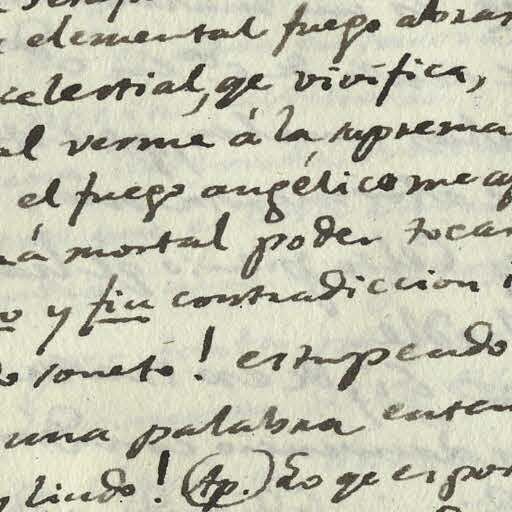 elemental fuego abras
celestial, qe vivifica,
al verme á la suprema
el fuego angélico me ap
á mortal poder tocar
o y fin contradiccion
soneto! estupendo
una palabra enten
lindo! (Ap.) Lo qe es por